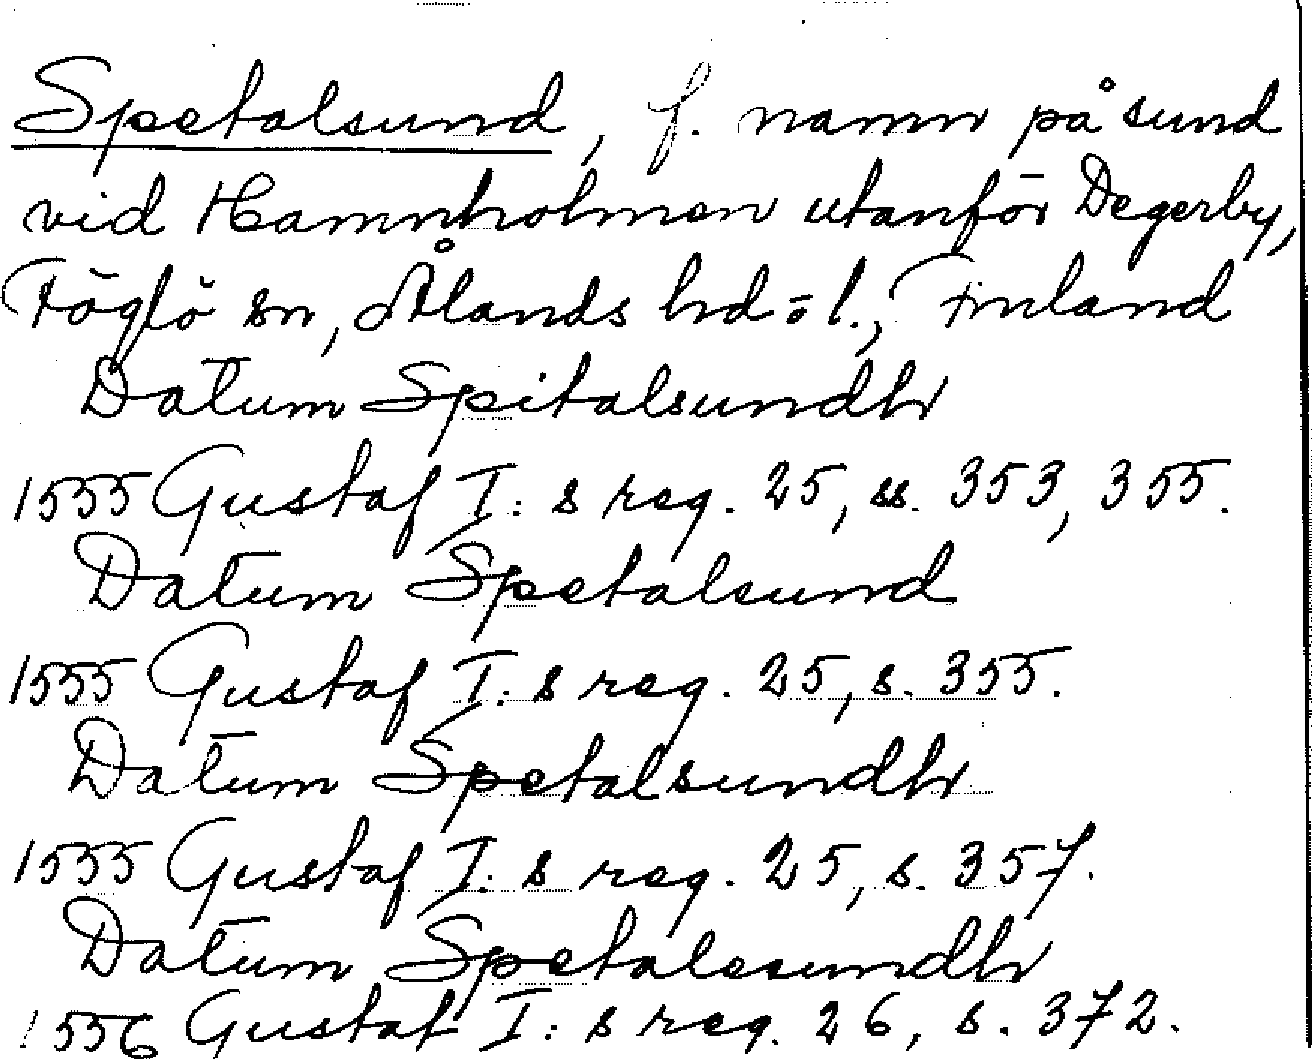 Spetalsund, f. namn på sund
vid Hamnholmen utanför Degerby,
Föglö sn, Ålands hd o. l., Finland
Datum Spitalsundh
1555 Gustaf I:s reg. 25, ss. 353, 355.
Datum Spetalsund
1555 Gustaf I:s reg. 25, s. 355.
Datum Spetalsundh
1555 Gustaf I:s reg. 25, s. 357.
Datum Spetalesundh
1556 Gustaf I:s reg. 26, s. 372.